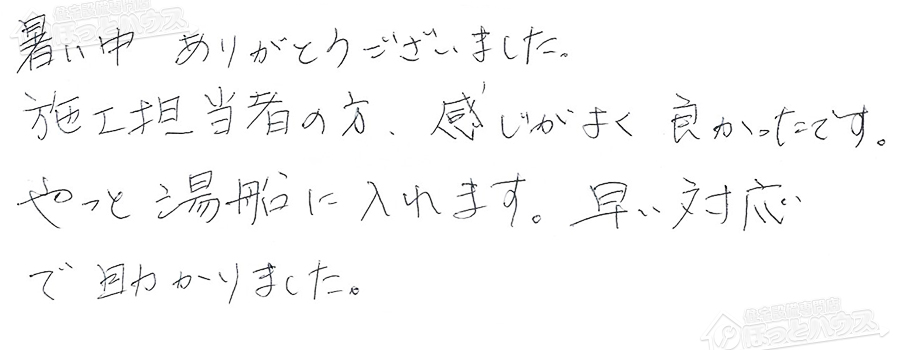 暑い中 ありがとうございました。
施工担当者の方、感じがよく 良かったです。
やっと湯船に入れます。早い対応
で助かりました。
ほっとハウス
ほっとハウス